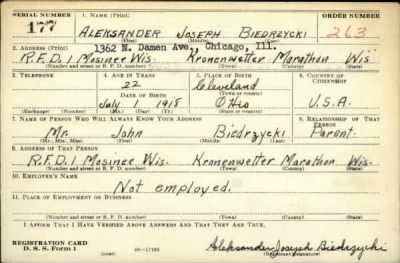 SERIAL NUMBER 1. NAME (Print) ORDER NUMBER
177 ALEKSANDER JOSEPH BIEDRZYCKI 263
(First) (Middle) (Last)
2. ADDRESS (Print) 1362 N. Damen Ave., Chicago, Ill.
R.F.D. 1 Mosinee Wis. Kronenwetter Marathon Wis.
(Number and street or R. F. D. number) (Town) (County) (State)
3. TELEPHONE 4. AGE IN YEARS 5. PLACE OF BIRTH 6. COUNTRY OF CITIZENSHIP
22 Cleveland
DATE OF BIRTH (Town or county)
July 1 1918 Ohio U.S.A.
(Exchange) (Number) (Mo.) (Day) (Yr.) (State or country)
7. NAME OF PERSON WHO WILL ALWAYS KNOW YOUR ADDRESS 8. RELATIONSHIP OF THAT PERSON
Mr. John Biedrzycki Parent.
(Mr., Mrs., Miss) (First) (Middle) (Last)
9. ADDRESS OF THAT PERSON
R.F.D. 1 Mosinee Wis. Kronenwetter Marathon Wis.
(Number and street or R. F. D. number) (Town) (County) (State)
10. EMPLOYER'S NAME
Not employed.
11. PLACE OF EMPLOYMENT OR BUSINESS
(Number and street or R. F. D. number) (Town) (County) (State)
I AFFIRM THAT I HAVE VERIFIED ABOVE ANSWERS AND THAT THEY ARE TRUE.
REGISTRATION CARD
D. S. S. Form 1 16-17105 (over) Aleksander Joseph Biedrzycki
(Registrant's signature)